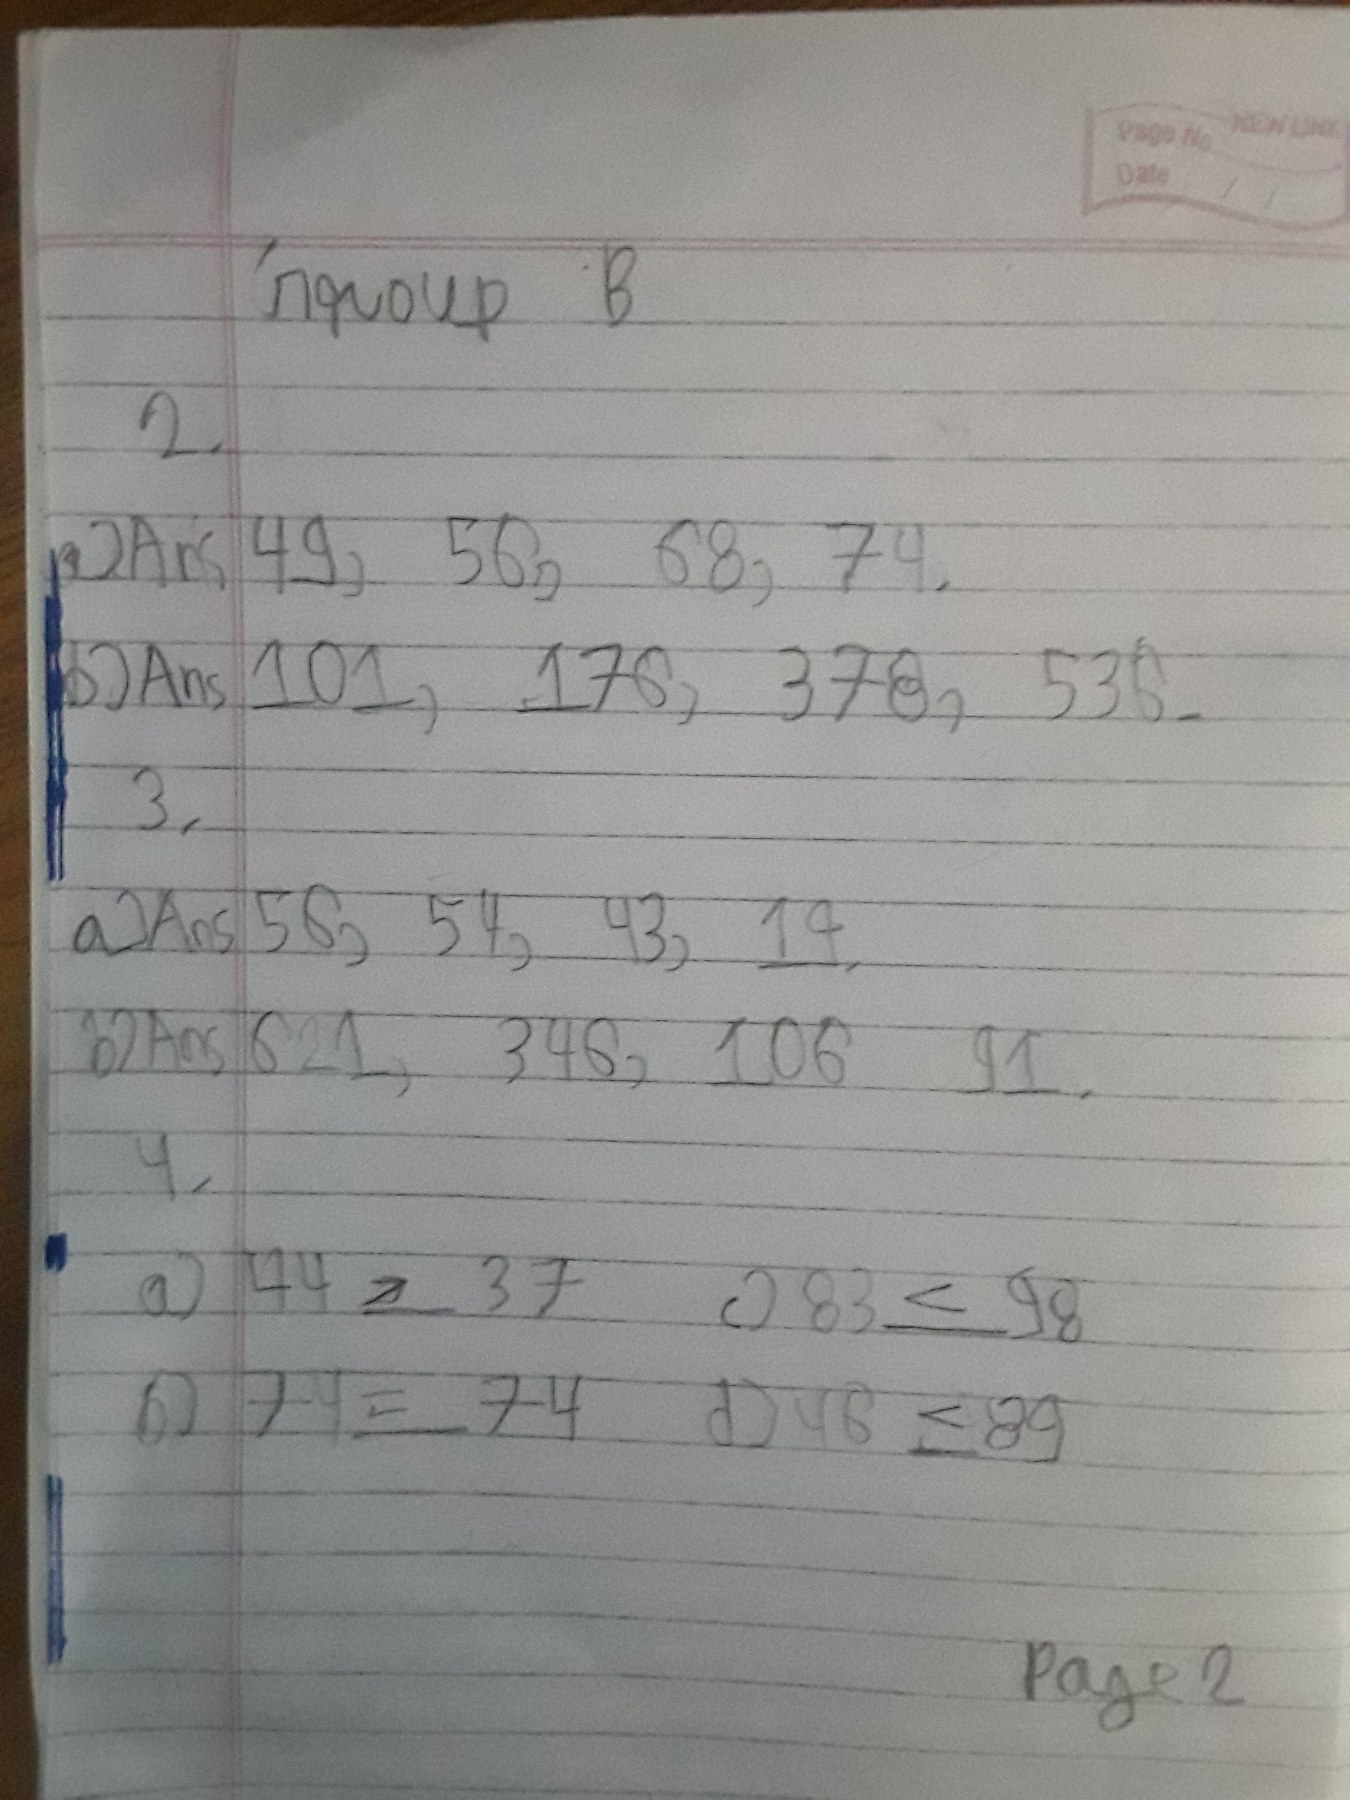 Page No NEW LINK
Date / /
group B
2.
a) Ans 49, 56, 68, 74.
b) Ans 101, 176, 378, 536.
3.
a) Ans 56, 54, 43, 14.
b) Ans 621, 346, 106 91.
4.
a) 44 > 37 c) 83 < 98
b) 74 = 74 d) 46 < 89
Page 2